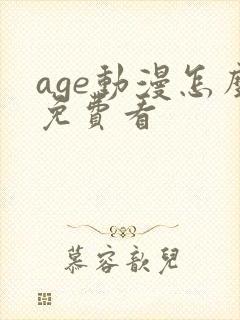 age動漫怎麼
免費看
慕容歆兒